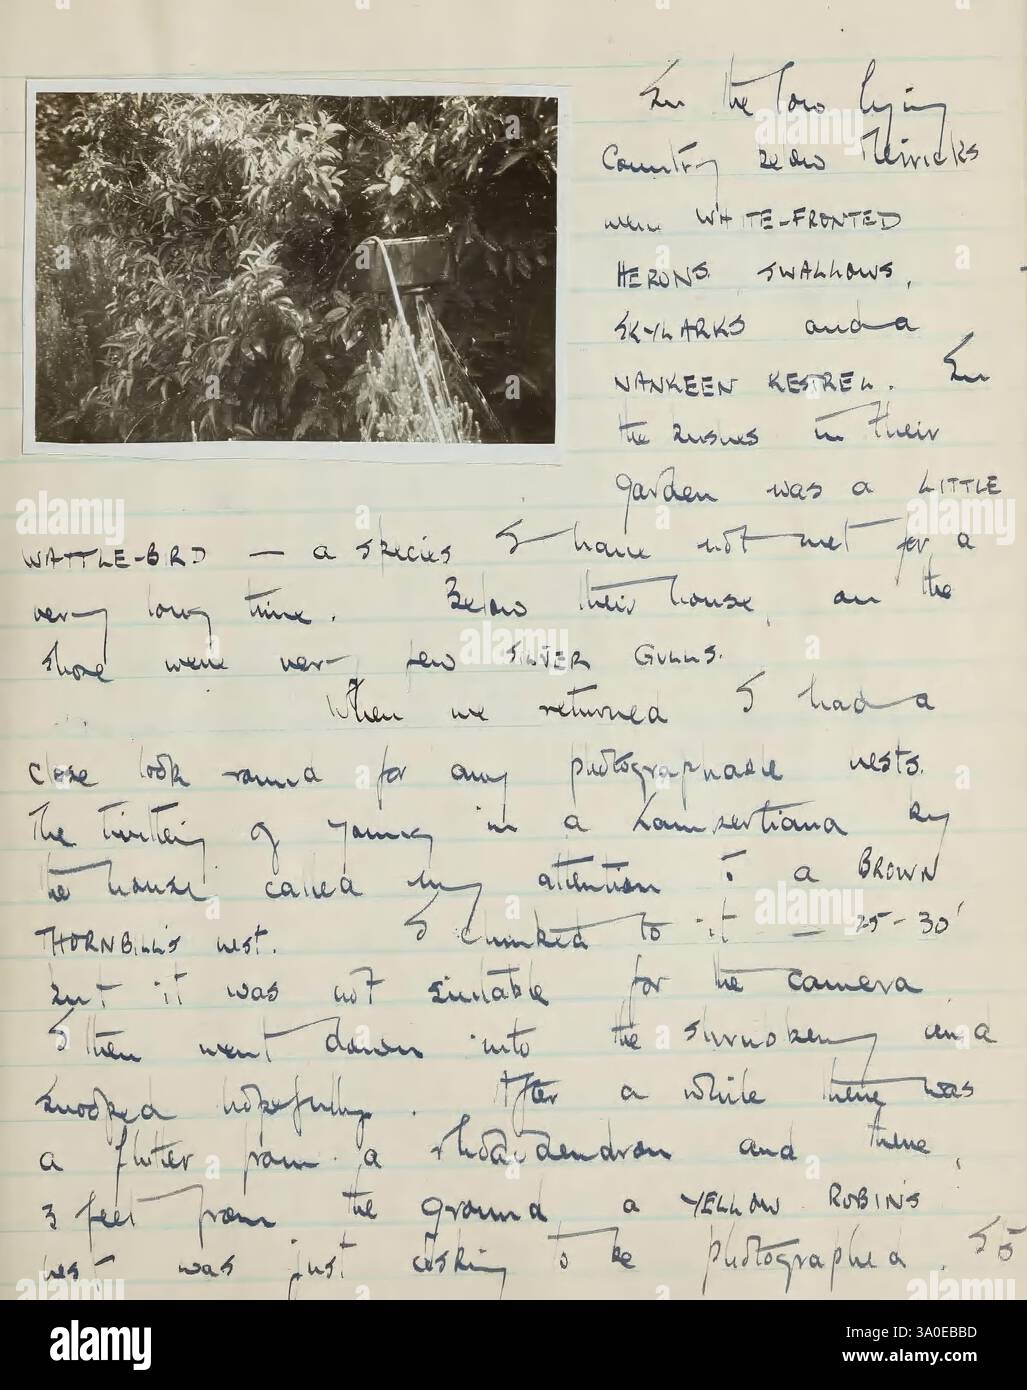 In the low lying
country below Merricks
were WHITE-FRONTED
HERONS, SWALLOWS,
SKYLARKS and a
NANKEEN KESTREL. In
the bushes in their
garden was a LITTLE
WATTLE-BIRD — a species I have not met for a
very long time. Below their house, on the
shore were very few SILVER GULLS.
When we returned I had a
close look round for any photographable nests.
The twittering of young in a Lambertiana by
the house called my attention to a BROWN
THORNBILL'S nest. I climbed to it — 25-30'
but it was not suitable for the camera
I then went down into the shrubbery and
snooped hopefully. After a while there was
a flutter from a rhododendron and there,
3 feet from the ground a YELLOW ROBIN'S
nest was just asking to be photographed. So
alamy
Image ID: 3A0EBBD
www.alamy.com